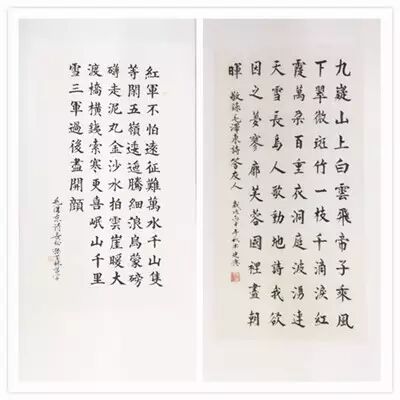 紅軍不怕遠征難萬水千山隻
等閒五嶺逶迤騰細浪烏蒙磅
礴走泥丸金沙水拍雲崖暖大
渡橋橫索寒更喜岷山千里
雪三軍過後盡開顏
毛澤東詩長征
九嶷山上白雲飛帝子乘風
下翠微斑竹一枝千滴淚紅
霞萬朵百重衣洞庭波湧連
天雪長島人歌動地詩我欲
因之夢寥廓芙蓉國裡盡朝
暉
敬錄毛澤東詩答友人